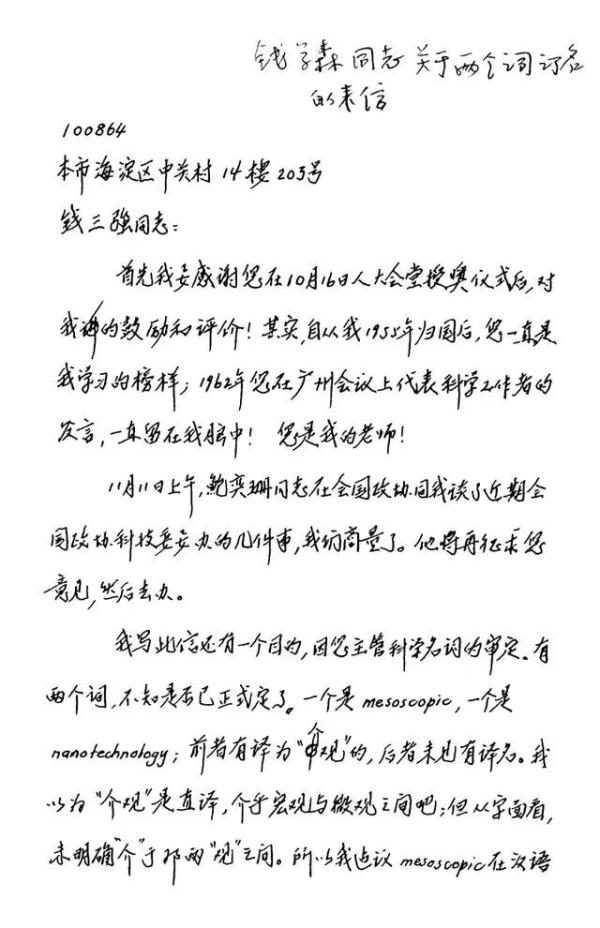 钱学森同志关于两个词订名
的来信
100864
本市海淀区中关村14楼203号
钱三强同志:
首先我要感谢您在10月16日人大会堂授奖仪式后,对
我讲的鼓励和评价!其实,自从我1955年归国后,您一直是
我学习的榜样;1962年您在广州会议上代表科学工作者的
发言,一直留在我脑中! 您是我的老师!
11月11日上午,鲍奕珊同志在全国政协同我谈了近期全
国政协科技委要办的几件事,我们商量了。他将再征求您
意见,然后去办。
我写此信还有一个目的,因您主管科学名词的审定。有
两个词,不知是否已正式定了。一个是mesoscopic,一个是
nanotechnology;前者有译为“介观”的,后者未见有译名。我
以为“介观”是直译,介乎宏观与微观之间吧;但从字面看,
未明确“介”于那两“观”之间。所以我建议mesoscopic在汉语